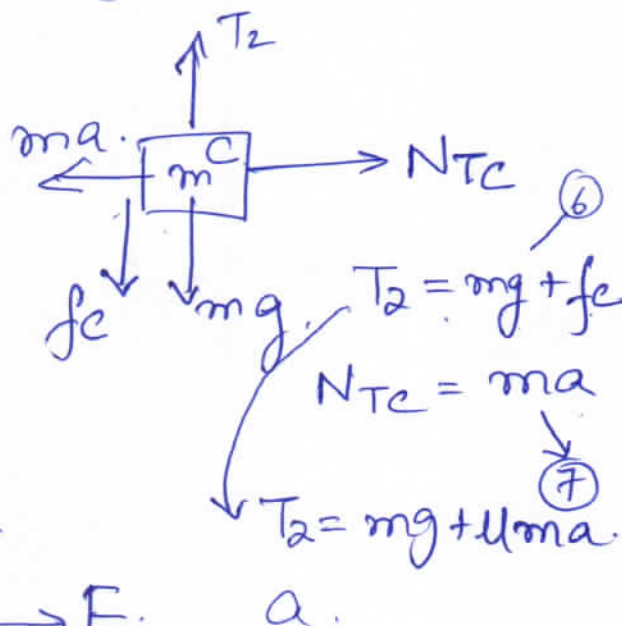 T₂
ma.
m C
N_TC
⑥
fc
mg.
T₂ = mg + fc
N_TC = ma
⑦
T₂ = mg + μma.
F. a.